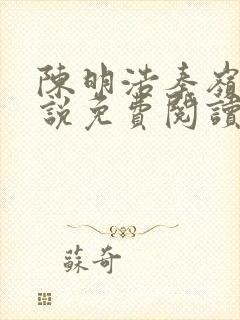 陳明浩秦嶺
說免費閱讀
蘇奇